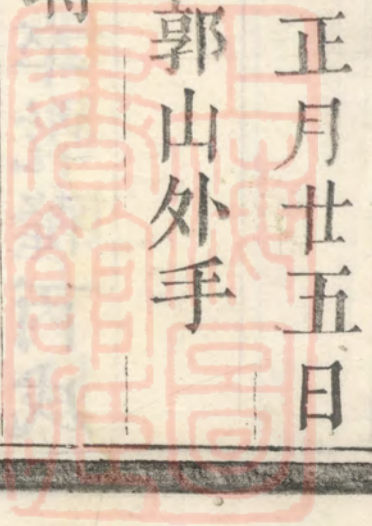 正月廿五日
郭山外手